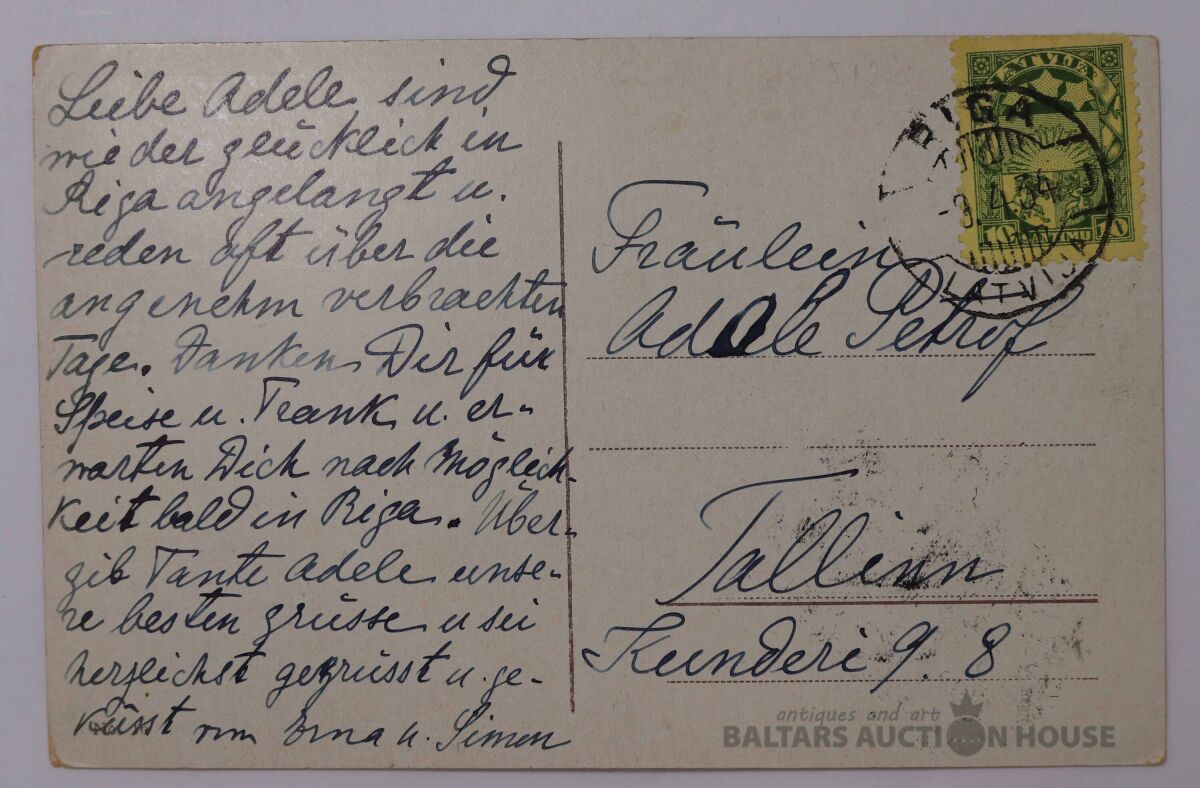 Liebe Adele sind
wieder glücklich in
Riga angelangt u.
reden oft über die
angenehm verbrachten
Tage. Danken Dir für
Speise u. Trank u. er-
warten Dich nach Möglich-
keit bald in Riga. Über-
gib Tante Adele unse-
re besten Grüsse u sei
herzlichst gegrüsst u. ge-
küsst von Erna u. Simon
LATVIJA
10 10
RIGA
-9. 4. 34 J
LATVIJA
Fräulein
Adele Petrof
Tallinn
Kunderi 9. 8
antiques and art
BALTARS AUCTION HOUSE